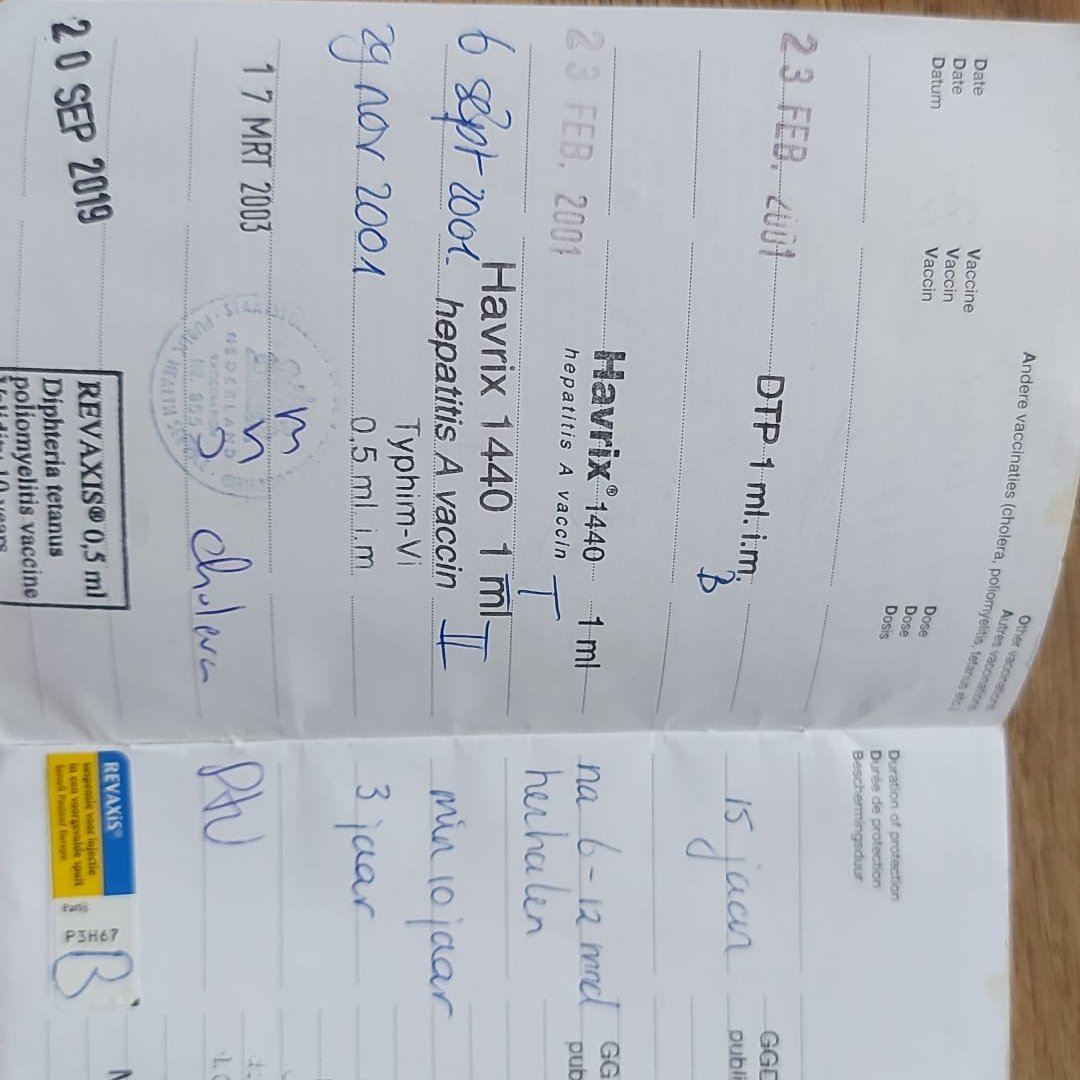 Other vaccinations
Autres vaccinations
Andere vaccinaties (cholera, poliomyelitis, tetanus etc.)
Date Vaccine Dose Duration of protection
Date Vaccin Dose Durée de protection
Datum Vaccin Dosis Beschermingsduur
23 FEB. 2001 DTP 1 ml. i.m. 15 jaar GGD
B publi
23 FEB. 2001 Havrix® 1440 1 ml na 6-12 mnd GG
hepatitis A vaccin I herhalen pub
Havrix 1440 1 ml
6 sept 2001 hepatitis A vaccin II min 10 jaar
Typhim-Vi
29 nov 2001 0,5 ml i.m 3 jaar
17 MRT 2003
NEDERLAND
cholera
20 SEP 2019 REVAXIS® 0,5 ml
Diphteria tetanus
poliomyelitis vaccine
Validity 10 years
REVAXIS®
suspensie voor injectie
in een voorgevulde spuit
Sanofi Pasteur Europe
P3H67
B